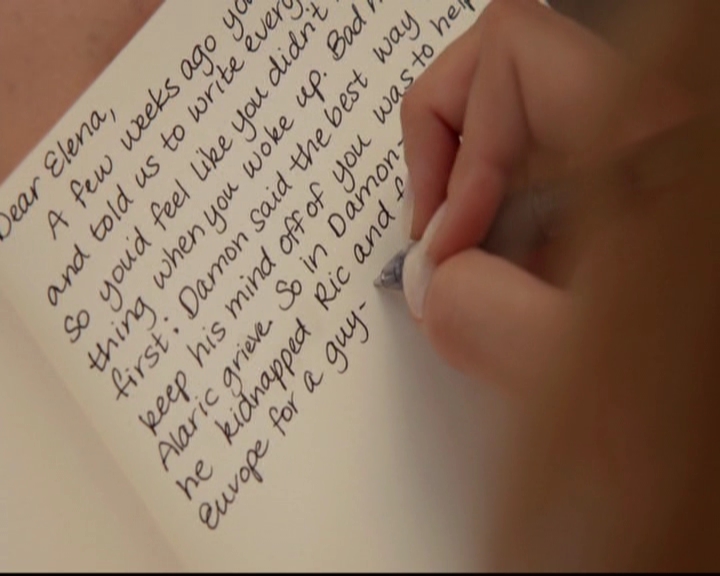 Dear Elena,
A few weeks ago
and told us to write every
So you'd feel like you didn't
thing when you woke up. Bad
first: Damon said the best way
keep his mind off of you was to help
Alaric grieve. So in Damon-
he kidnapped Ric and
Europe for a guy-